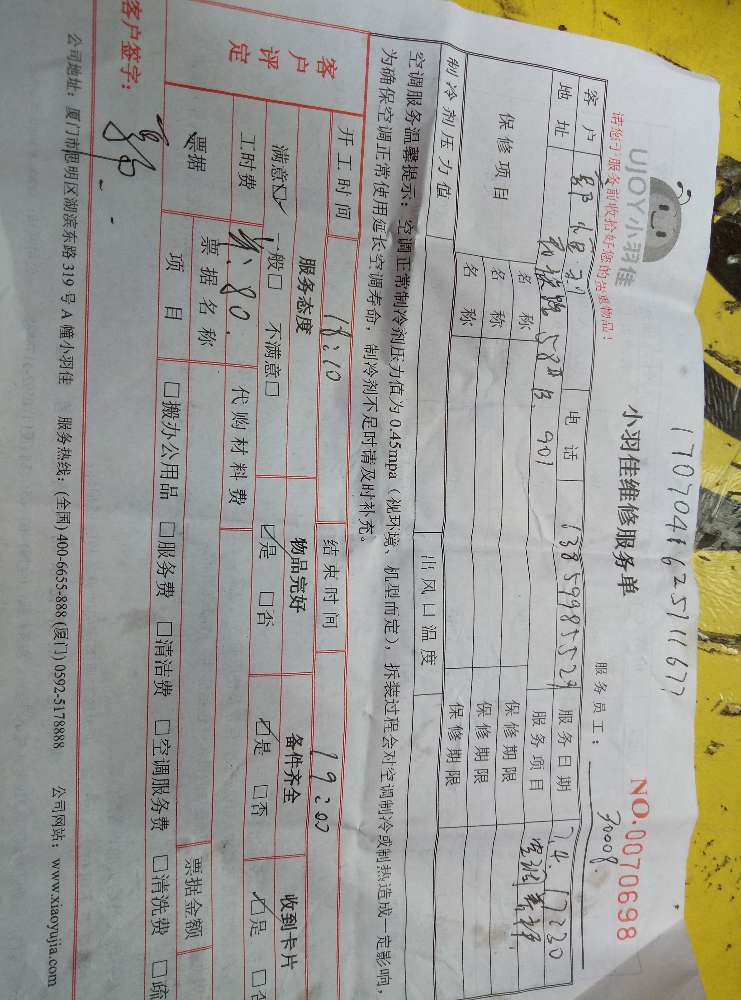 1707041625111677
UJOY小羽佳
请您于服务前收拾好您的贵重物品!
小羽佳维修服务单
NO.0070698
服务员工: 30008
客户 电话 13859985529 服务日期 7.4 17:30
地址 58# B.901 服务项目 空调
保修项目 名称 保修期限
名称 保修期限
名称 保修期限
制冷剂压力值 出风口温度
空调服务温馨提示: 空调正常制冷剂压力值为0.45mpa (视环境、机型而定), 拆装过程会对空调制冷或制热造成一定影响,
为确保空调正常使用延长空调寿命, 制冷剂不足时请及时补充。
开工时间 18:10 结束时间 19:00
客户评定 服务态度 物品完好 备件齐全 收到卡片
满意☑ 一般□ 不满意□ ☑是 □否 ☑是 □否 ☑是 □否
工时费 80. 代购材料费
票据 票据名称 票据金额
项目 □搬办公用品 □服务费 □清洁费 □空调服务费 □清洗费 □疏
客户签字:
公司地址: 厦门市思明区湖滨东路319号A幢小羽佳 服务热线: (全国) 400-6655-888 (厦门) 0592-5178888 公司网站: www.xiaoyujia.com